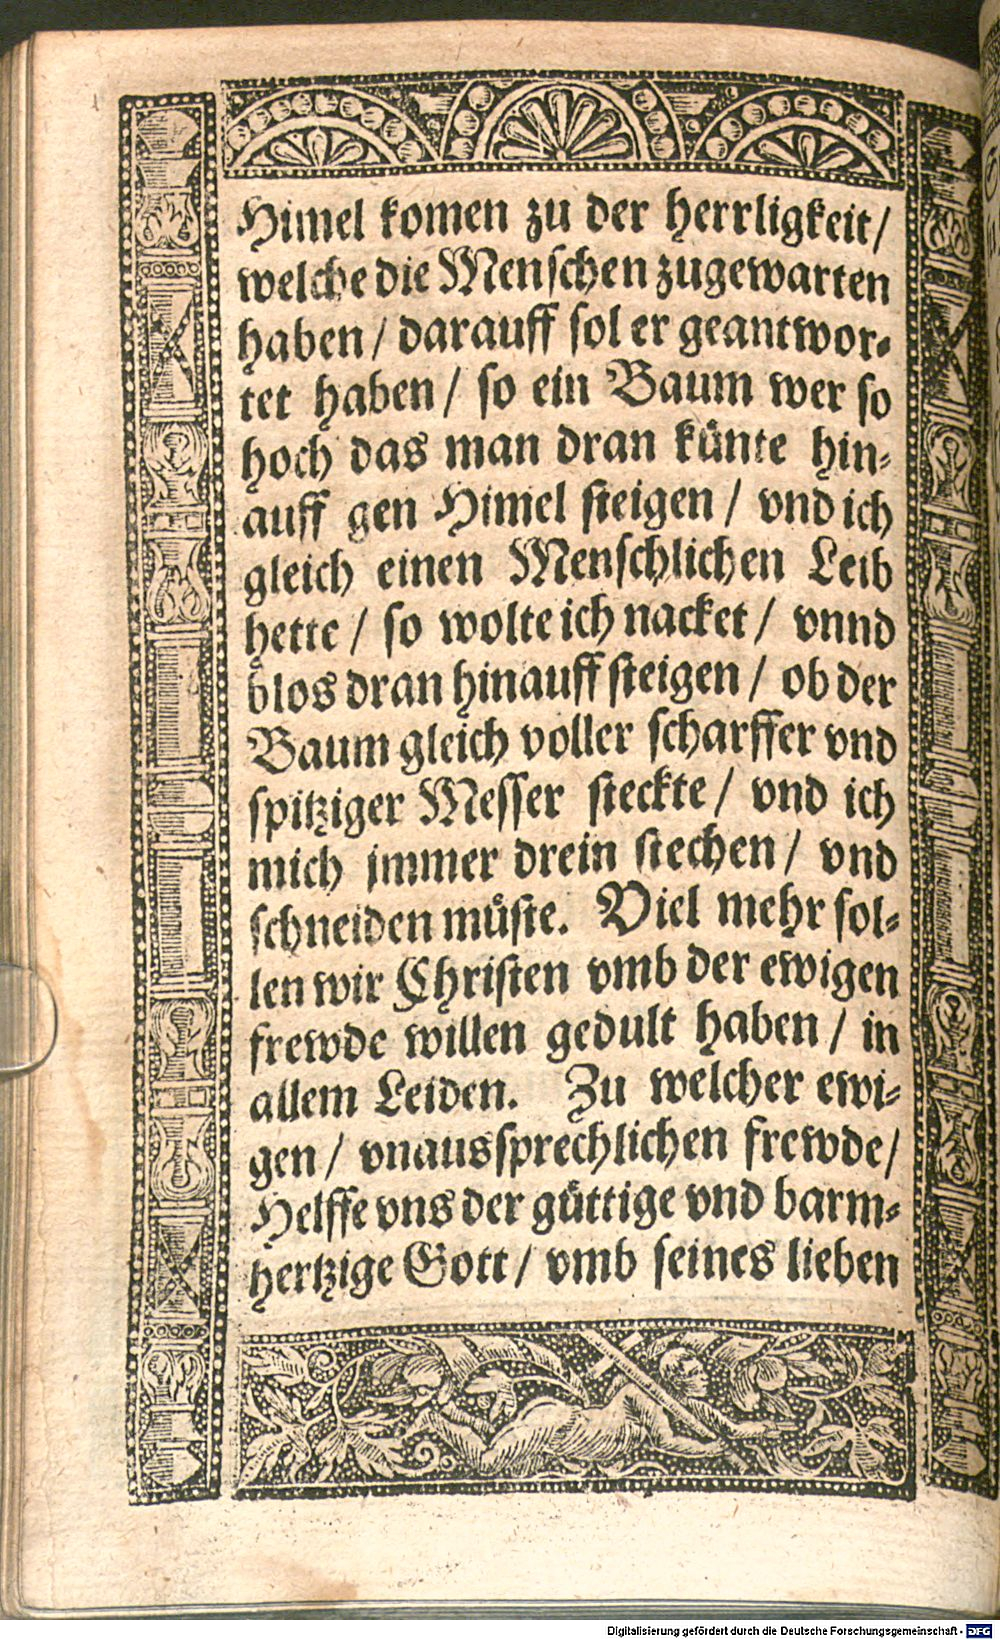 Himel komen zu der herrligkeit/
welche die Menschen zugewarten
haben / darauff sol er geantwor⸗
tet haben / so ein Baum wer so
hoch das man dran künte hin⸗
auff gen Himel steigen / vnd ich
gleich einen Menschlichen Leib
hette / so wolte ich nacket / vnnd
blos dran hinauff steigen / ob der
Baum gleich voller scharffer vnd
spitziger Messer steckte / vnd ich
mich jmmer drein stechen / vnd
schneiden müste. Viel mehr sol⸗
len wir Christen vmb der ewigen
frewde willen gedult haben / in
allem Leiden. Zu welcher ewi⸗
gen / vnaussprechlichen frewde/
Helffe vns der güttige vnd barm⸗
hertzige Gott / vmb seines lieben
Digitalisierung gefördert durch die Deutsche Forschungsgemeinschaft - DFG